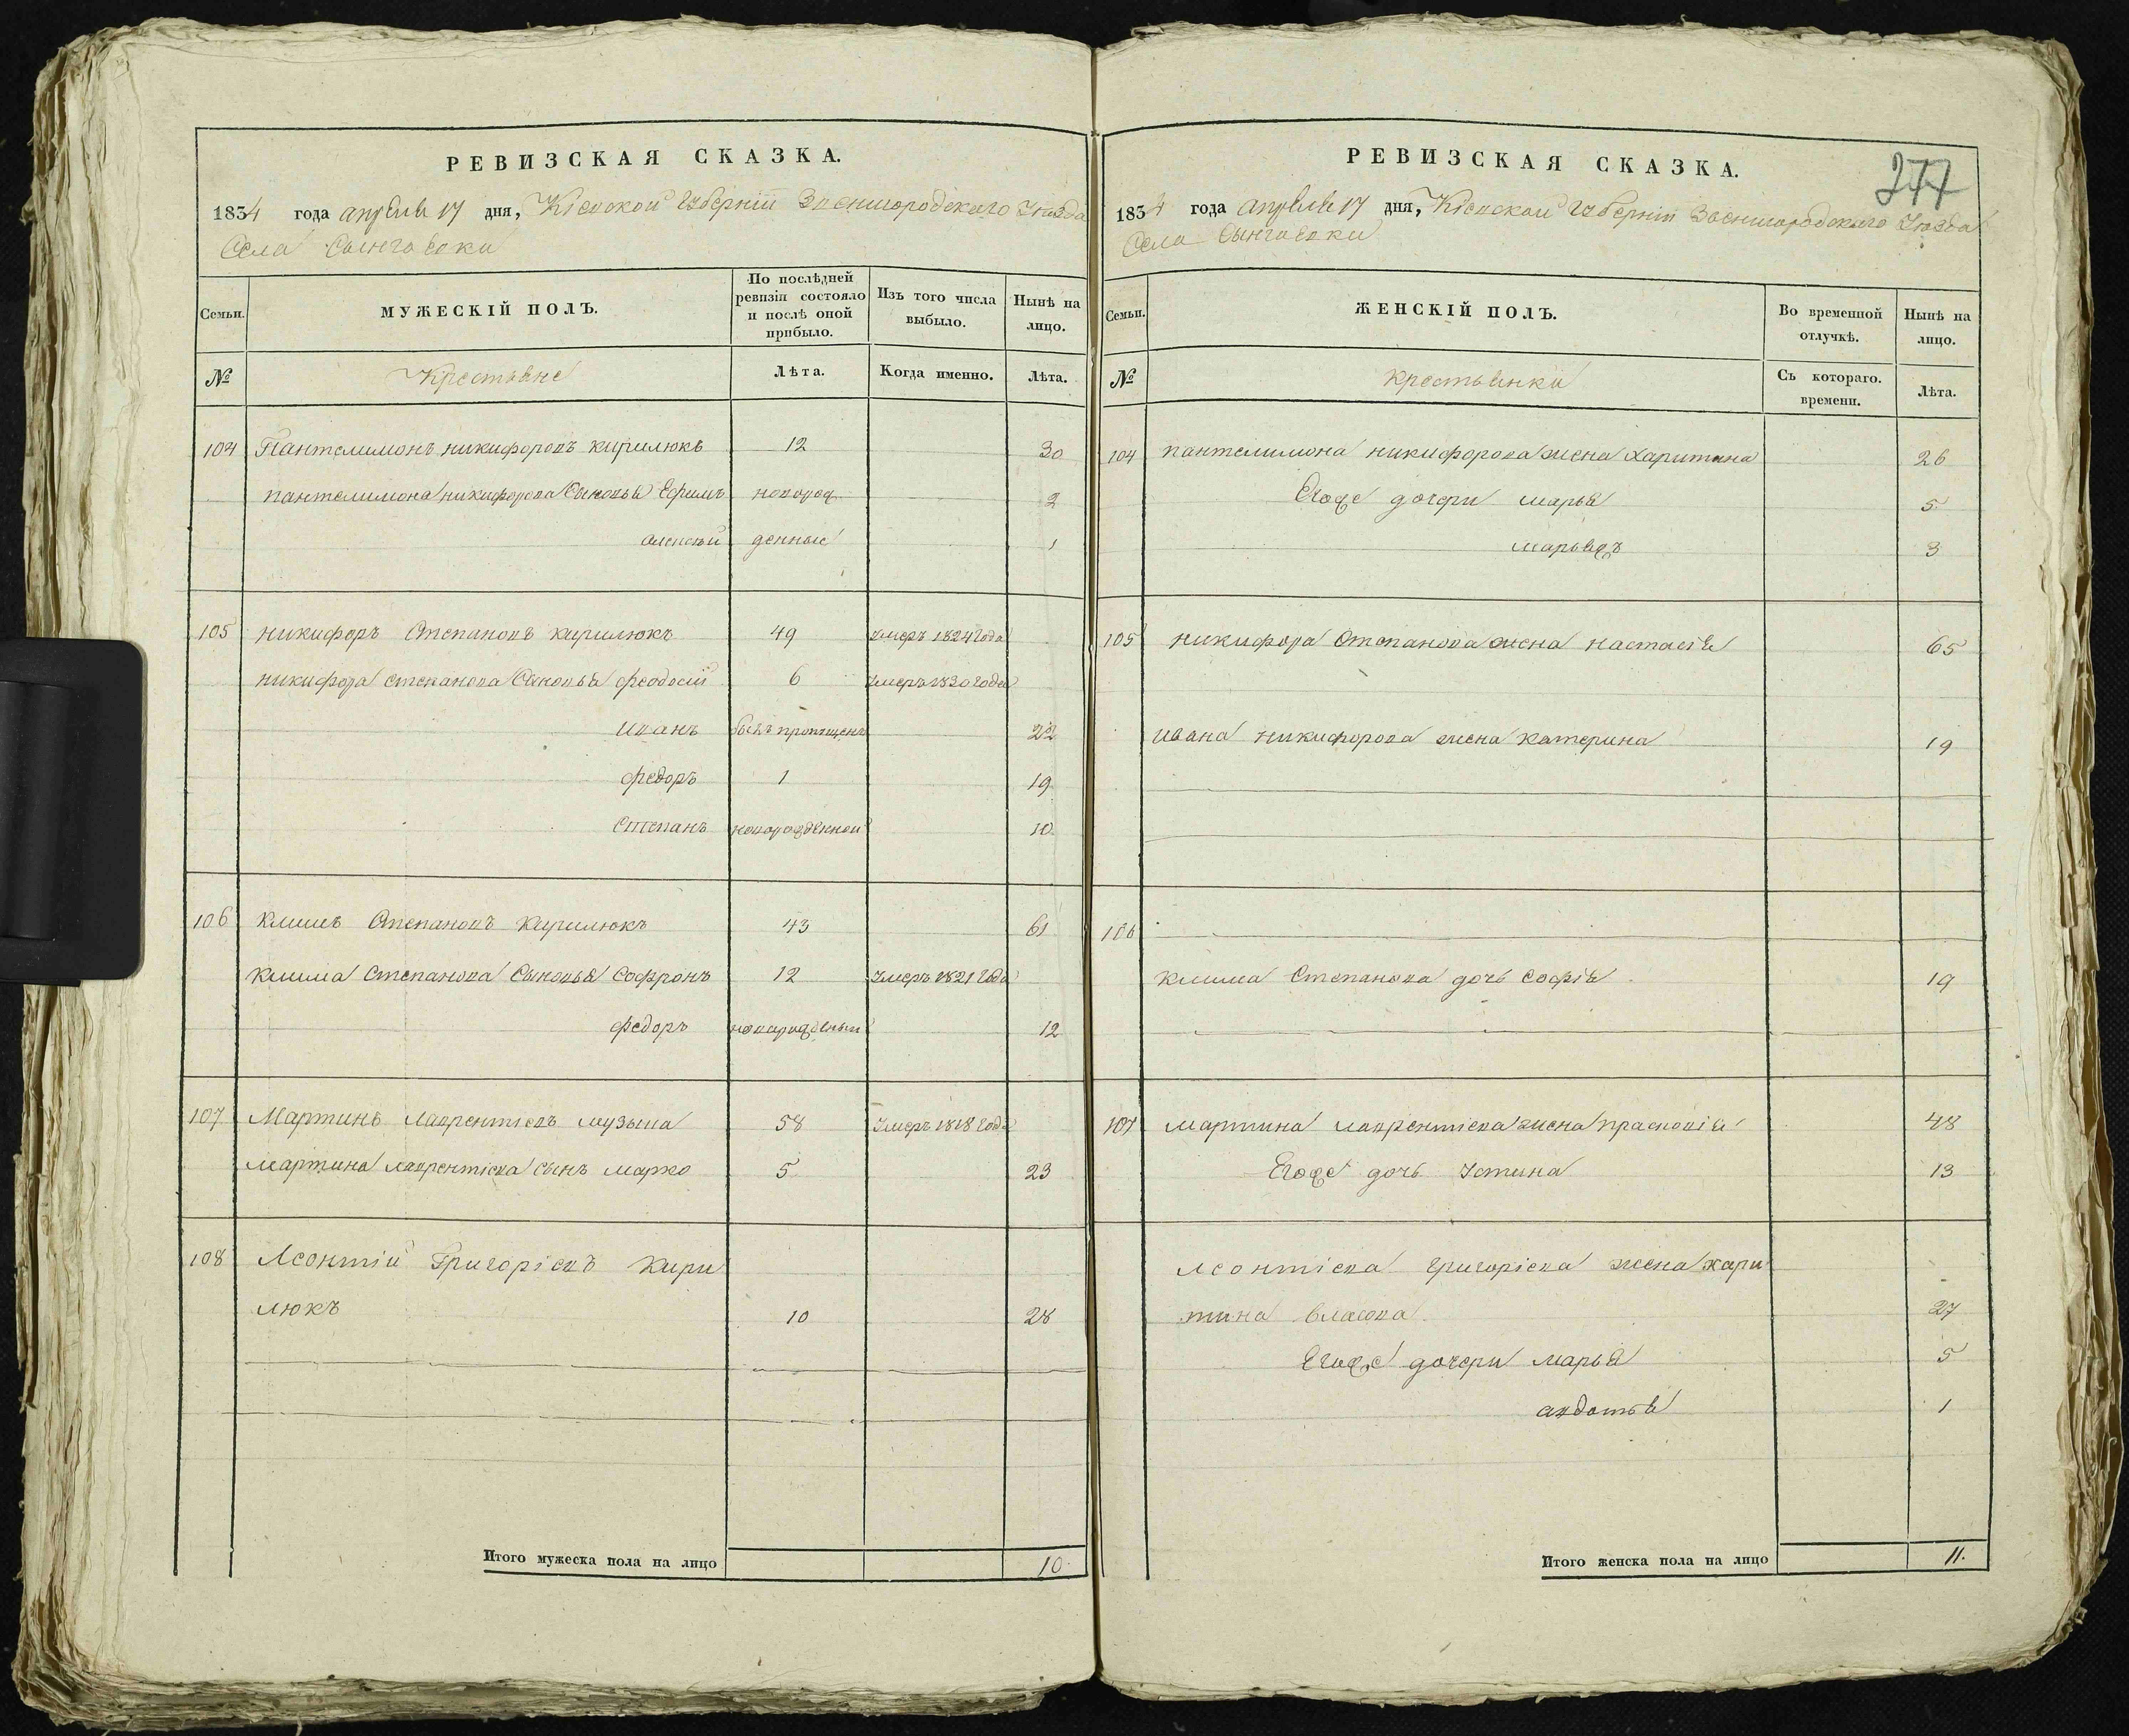 РЕВИЗСКАЯ СКАЗКА.
1834 года апреля 17 дня, Кіевской Губерніи Звенигородского Уезда
Села
Семьи.
МУЖЕСКІЙ ПОЛЪ.
По послѣдней ревизіи состояло и послѣ оной прибыло.
Изъ того числа выбыло.
Нынѣ на лицо.
№
Крестьяне
Лѣта.
Когда именно.
Лѣта.
104 Пантелимонъ никифоровъ кирилюкъ 12 30
пантелимона никифорова Сыновья Ефимъ новорож 2
алексѣй денные 1
105 никифоръ Степановъ кирилюкъ 49 умеръ 1824 года
никифора степанова Сыновья феодосій 6 умеръ 1830 года
иванъ былъ пропущенъ 22
федоръ 1 19
Степанъ новорожденной 10
106 климъ Степановъ Кирилюкъ 43 61
клима Степанова Сыновья Софронъ 12 умеръ 1821 года
федоръ новорожденый 12
107 Мартинъ лаврентіевъ музыка 58 умеръ 1818 года
мартина лаврентіева сынъ марко 5 23
108 Леонтій Григоріевъ Кири
люкъ 10 28
Итого мужеска пола на лицо 10
РЕВИЗСКАЯ СКАЗКА.
277
1834 года апреля 17 дня, Кіевской Губерніи Звенигородского Уезда
Села
Семьи.
ЖЕНСКІЙ ПОЛЪ.
Во временной отлучкѣ.
Нынѣ на лицо.
№
крестьянки
Съ котораго. времени.
Лѣта.
104 пантелимона никифорова жена Харитина 26
Егоже дочери марья 5
марья жъ 3
105 никифора Степанова жена настасія 65
ивана никифорова жена катерина 19
106
клима Степанова дочь софія 19
107 мартина лаврентіева жена прасковія 48
Егоже дочь Устина 13
леонтіева григоріева жена хари
тина власова 27
Егоже дочери марья 5
авдотья 1
Итого женска пола на лицо 11.